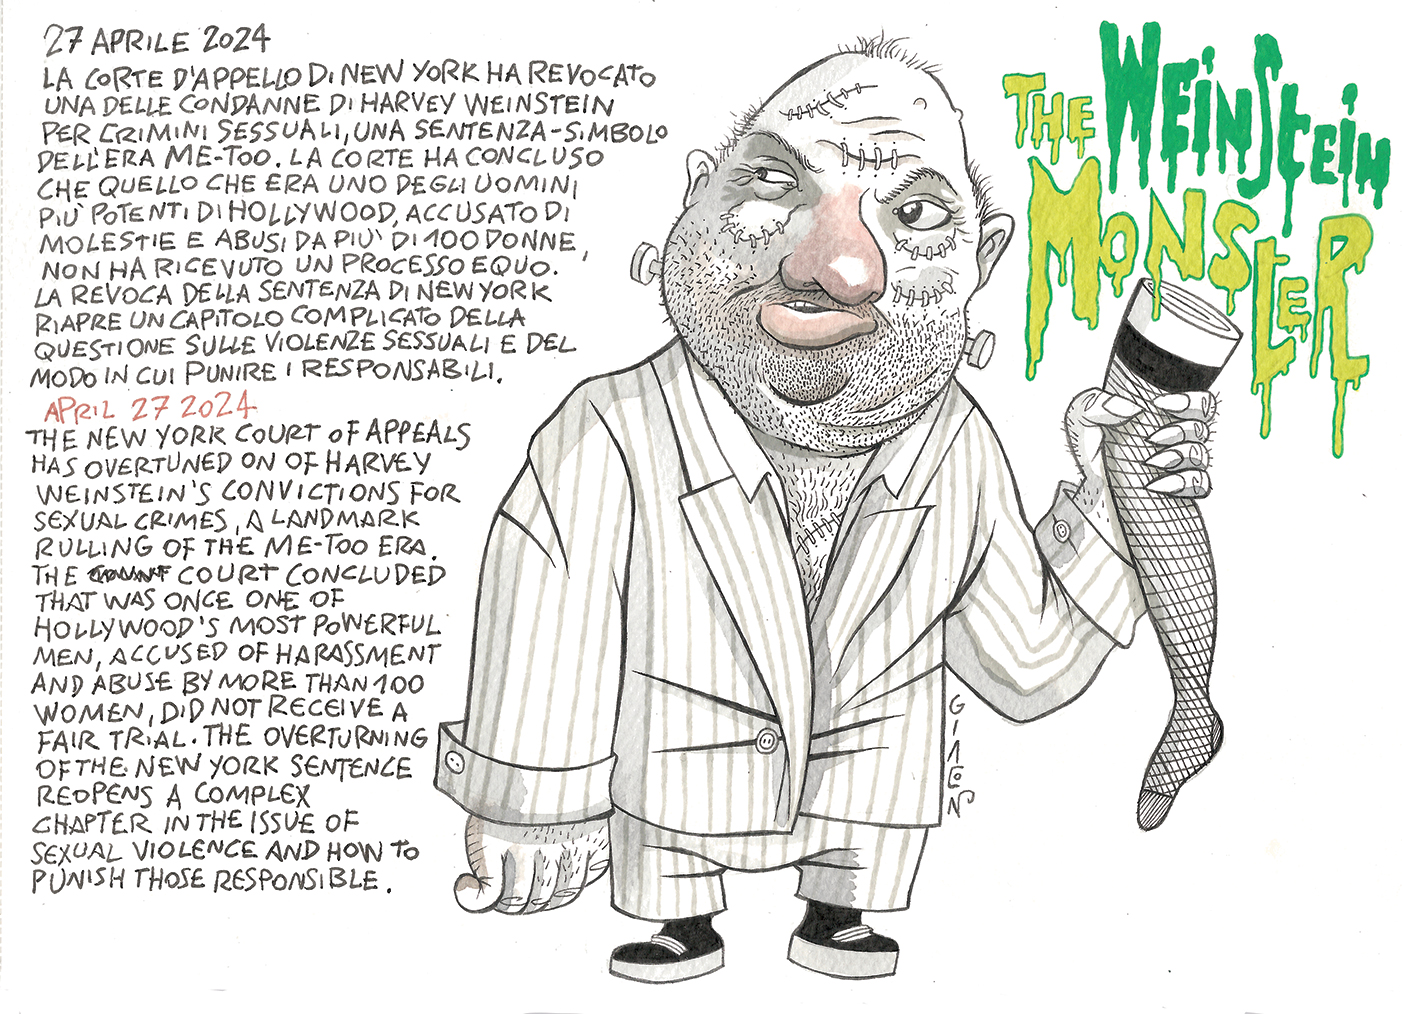 27 APRILE 2024
LA CORTE D'APPELLO DI NEW YORK HA REVOCATO
UNA DELLE CONDANNE DI HARVEY WEINSTEIN
PER CRIMINI SESSUALI, UNA SENTENZA-SIMBOLO
DELL'ERA ME-TOO. LA CORTE HA CONCLUSO
CHE QUELLO CHE ERA UNO DEGLI UOMINI
PIU' POTENTI DI HOLLYWOOD, ACCUSATO DI
MOLESTIE E ABUSI DA PIU' DI 100 DONNE,
NON HA RICEVUTO UN PROCESSO EQUO.
LA REVOCA DELLA SENTENZA DI NEW YORK
RIAPRE UN CAPITOLO COMPLICATO DELLA
QUESTIONE SULLE VIOLENZE SESSUALI E DEL
MODO IN CUI PUNIRE I RESPONSABILI.
APRIL 27 2024
THE NEW YORK COURT OF APPEALS
HAS OVERTUNED ON OF HARVEY
WEINSTEIN'S CONVICTIONS FOR
SEXUAL CRIMES, A LANDMARK
RULLING OF THE ME-TOO ERA.
THE COURT CONCLUDED
THAT WAS ONCE ONE OF
HOLLYWOOD'S MOST POWERFUL
MEN, ACCUSED OF HARASSMENT
AND ABUSE BY MORE THAN 100
WOMEN, DID NOT RECEIVE A
FAIR TRIAL. THE OVERTURNING
OF THE NEW YORK SENTENCE
REOPENS A COMPLEX
CHAPTER IN THE ISSUE OF
SEXUAL VIOLENCE AND HOW TO
PUNISH THOSE RESPONSIBLE.
THE WEINSTEIN
MONSTER